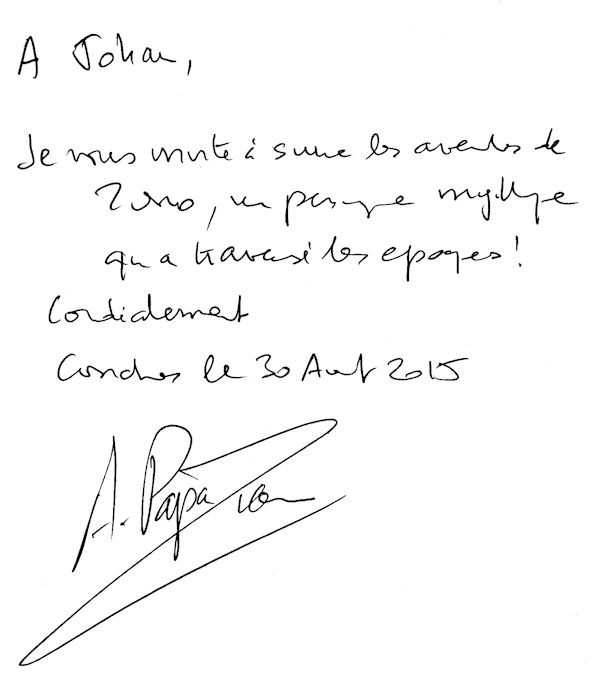 A Johan,
Je vous invite à suivre les aventures de
Zorro, un personnage mythique
qui a traversé les epoques !
Cordialement
Londres le 30 Aout 2015
A. Papa